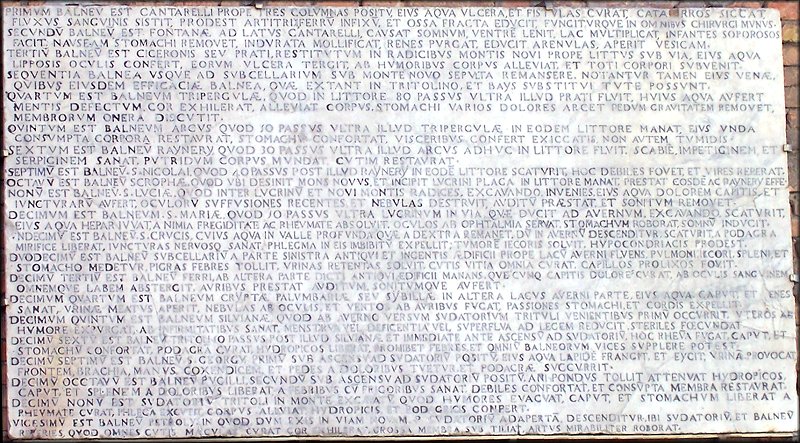 PRIMVM BALNEV EST CANTARELLI PROPE TRES COLVMNAS POSITV, EIVS AQVA VLCERA, ET FISTVLAS CVRAT, CATARROS SICCAT
FLVXVS SANGVINIS SISTIT, PRODEST ARTITRI, FERRV INFIXV, ET OSSA FRACTA EDVCIT, FVNGITVRQVE IN OMNIBVS CHIRVRGI MVNVS
SECVNDV BALNEV EST FONTANÆ, AD LATVS CANTARELLI, CAVSAT SOMNVM, VENTRE LENIT, LAC MVLTIPLICAT, INFANTES SOPOROSOS
FACIT, NAVSEAM STOMACHI REMOVET, INDVRATA MOLLIFICAT, RENES PVRGAT, EDVCIT ARENVLAS, APERIT VESICAM
TERTIV BALNEV EST CICERONIS SEV PRATI, RESTITVTVM IN RADICIBVS MONTIS NOVI PROPE LITTVS SVB VIA, EIVS AQVA
LIPPOSIS OCVLIS CONFERT, EORVM VLCERA TERGIT, A HVMORIBVS CORPVS ALLEVIAT, ET TOTI CORPORI SVBVENIT
SEQVENTIA BALNEA VSQVE AD SVBCELLARIVM SVB MONTE NOVO SEPVLTA REMANSERE, NOTANTVR TAMEN EIVS VENÆ,
QVIBVS EIVSDEM EFFICACIÆ BALNEA, QVÆ EXTANT IN TRITOLINO, ET BAYS SVBSTITVI TVTE POSSVNT
QVARTVM EST BALNEVM TRIPERGVLÆ, QVOD IN LITTORE 80 PASSVS VLTRA ILLVD PRATI FLVIT, HVIVS AQVA AVFERT
MENTIS DEFECTVM, COR EXHILERAT, ALLEVIAT CORPVS, STOMACHI VARIOS DOLORES ARCET, PEDVM GRAVITATEM REMOVET,
MEMBRORVM ONERA DISCVTIT
QVINTVM EST BALNEVM ARCVS QVOD 30 PASSVS VLTRA ILLVD TRIPERGVLÆ IN EODEM LITTORE MANAT, EIVS VNDA
CONSVMPTA CORPORA RESTAVRAT, STOMACHV CONFORTAT, VISCERIBVS CONFERT EXICCATIS, NON AVTEM TVMIDIS
SEXTVM EST BALNEV RAYNERY QVOD 30 PASSVS VLTRA ILLVD ARCVS ADHVC IN LITTORE FLVIT, SCABIE, IMPETIGINEM, ET
SERPIGINEM SANAT, PVTRIDVM CORPVS MVNDAT, CVTIM RESTAVRAT
SEPTIMV EST BALNEV S. NICOLAI, QVOD PASSV POST ILLVD RAYNERY IN EODE LITTORE SCATVRIT, HOC DEBILES FOVET, ET VIRES REPERAT
OCTAVV EST BALNEV SCROPHÆ, QVOD VBI DESINIT MONS NOVVS, ET INCIPIT LVCRINI PLAGA IN LITTORE MANAT, PRESTAT EOSDE AC RAYNERY EFFE
NONV EST BALNEV S. LVCIÆ, QVOD INTER LVCRINV ET NOVI MONTIS RADICES, EXCAVANDO INVENIES, EIVS AQVA DOLOREM CAPITIS, ET
IVNCTVRARV AVFERT, OCVLORV SVFFVSIONES RECENTES, ET NEBVLAS DESTRVIT, AVDITV PRÆSTAT, ET SONITVM REMOVET
DECIMVM EST BALNEVM S. MARIÆ, QVOD 30 PASSV VLTRA LVCRINVM IN VIA, QVÆ DVCIT AD AVERNVM, EXCAVANDO SCATVRIT,
EIVS AQVA HEPAR IVVAT, A NIMIA FREGIDITATE AC RHEVMATE ABSOLVIT, OCVLOS AB OPHTALMIA SERVAT, STOMACHVM ROBORAT, SOMNV INDVCIT
VNDECIMV EST BALNEV S. CRVCIS, CVIVS AQVA IN VALLE PROFVNDI, QVÆ A DEXTRA REMANET, DV IN AVERNV DESCENDITVR, SCATVRIT, A PODAGRA
MIRIFICE LIBERAT, IVNCTVRAS NERVOSQ. SANAT, PHLEGMA IN EIS IMBIBITV EXPELLIT, TVMORE IECORIS SOLVIT, HYPOCONDRIACIS PRODEST
DVODECIMV EST BALNEV SVBCELLARIV A PARTE SINISTRA ANTIQVI ET INGENTIS ÆDIFICII PROPE LACV AVERNI FLVENS, PVLMONI, ICORI, SPLENI, ET
STOMACHO MEDETVR, PIGRAS FEBRES TOLLIT, VRINAS RETENTAS SOLVIT, CVTIS VITIA OMNIA CVRAT, CAPILLOS PROLIXOS FOVIT
DECIMV TERTIV EST BALNEV FERRI, AB ALTERA PARTE DICTI ANTIQVI ÆDIFICII MANANS, QVECVMQ CAPITIS DOLORE CVRAT, AB OCVLIS SANGVINEM
OMNEMQVE LABEM ABSTERGIT, AVRIBVS PRESTAT AVDITVM SONITVMQVE AVFERT
DECIMVM QVARTVM EST BALNEVM CRYPTÆ PALVMBARIÆ SEV SYBILLÆ IN ALTERA LACVS AVERNI PARTE, EIVS AQVA CAPVT, ET RENES
SANAT, VRINÆ MEATVS APERIT, NEBVLAS AB OCVLIS, ET VENTOS AB AVRIBVS FVGAT, PASSIONES STOMACHI, ET CORDIS EXPELLIT
DECIMVM QVINTVM EST BALNEVM SILVIANÆ, QVOD AB AVERNO VERSVM SVDATORIVM TRITVLI VENIENTIBVS PRIMV OCCVRRIT, VTEROS AB
HVMORE EXPVRGAT, AB INFIRMITATIBVS SANAT, MENSTRVA VEL DEFICIENTIA VEL SVPERFLVA AD LEGEM REDVCIT, STERILES FOECVNDAT
DECIMV SEXTV EST BALNEV TRITVLI PASSVS POST ILLVD SILVIANÆ, ET IMMEDIATE ANTE ASCENSV AD SVDATORIV, HOC RHEVMA FVGAT, CAPVT, ET
STOMACHV CONFORTAT, PODAGRA CVRAT, HYDROPICOS LIBERAT, PROHIBET FEBRES, ET OMNIV BALNEORVM VICES SVPPLERE POTEST
DECIMV SEPTIMV EST BALNEV S. GEORGY PRIMV SVB ASCENSV AD SVDATORIV POSITV, EIVS AQVA LAPIDE FRANGIT, ET EYCIT, VRINA PROVOCAT
FRONTEM, BRACHIA, MANVS, COXENDICEM, ET PEDES A DOLORIBVS TVETVR, ET PODAGRÆ SVCCVRRIT
DECIMV OCTAVV EST BALNEV PVGILLI, SECVNDV SVB ASCENSV AD SVDATORIV POSITV, ANI PONDVS TOLLIT ATTENVAT HYDROPICOS,
CAPVT, ET SPLENEM A DOLORIBVS LIBERAT, A FEBRIBVS CV FRIGORIBVS SANAT, DEBILES CONFORTAT, ET CONSVPTA MEMBRA RESTAVRAT
DECIMV NONV EST SVDATORIV TRITOLI IN MONTE EXCAVATV QVOD HVMORES EVACVAT, CAPVT, ET STOMACHVM LIBERAT A
RHEVMATE CVRAT, PHLEGMA EXCVTIT, CORPVS ALLEVIAT, HYDROPICIS ET PODAGRICIS CONFERT
VIGESIMV EST BALNEV